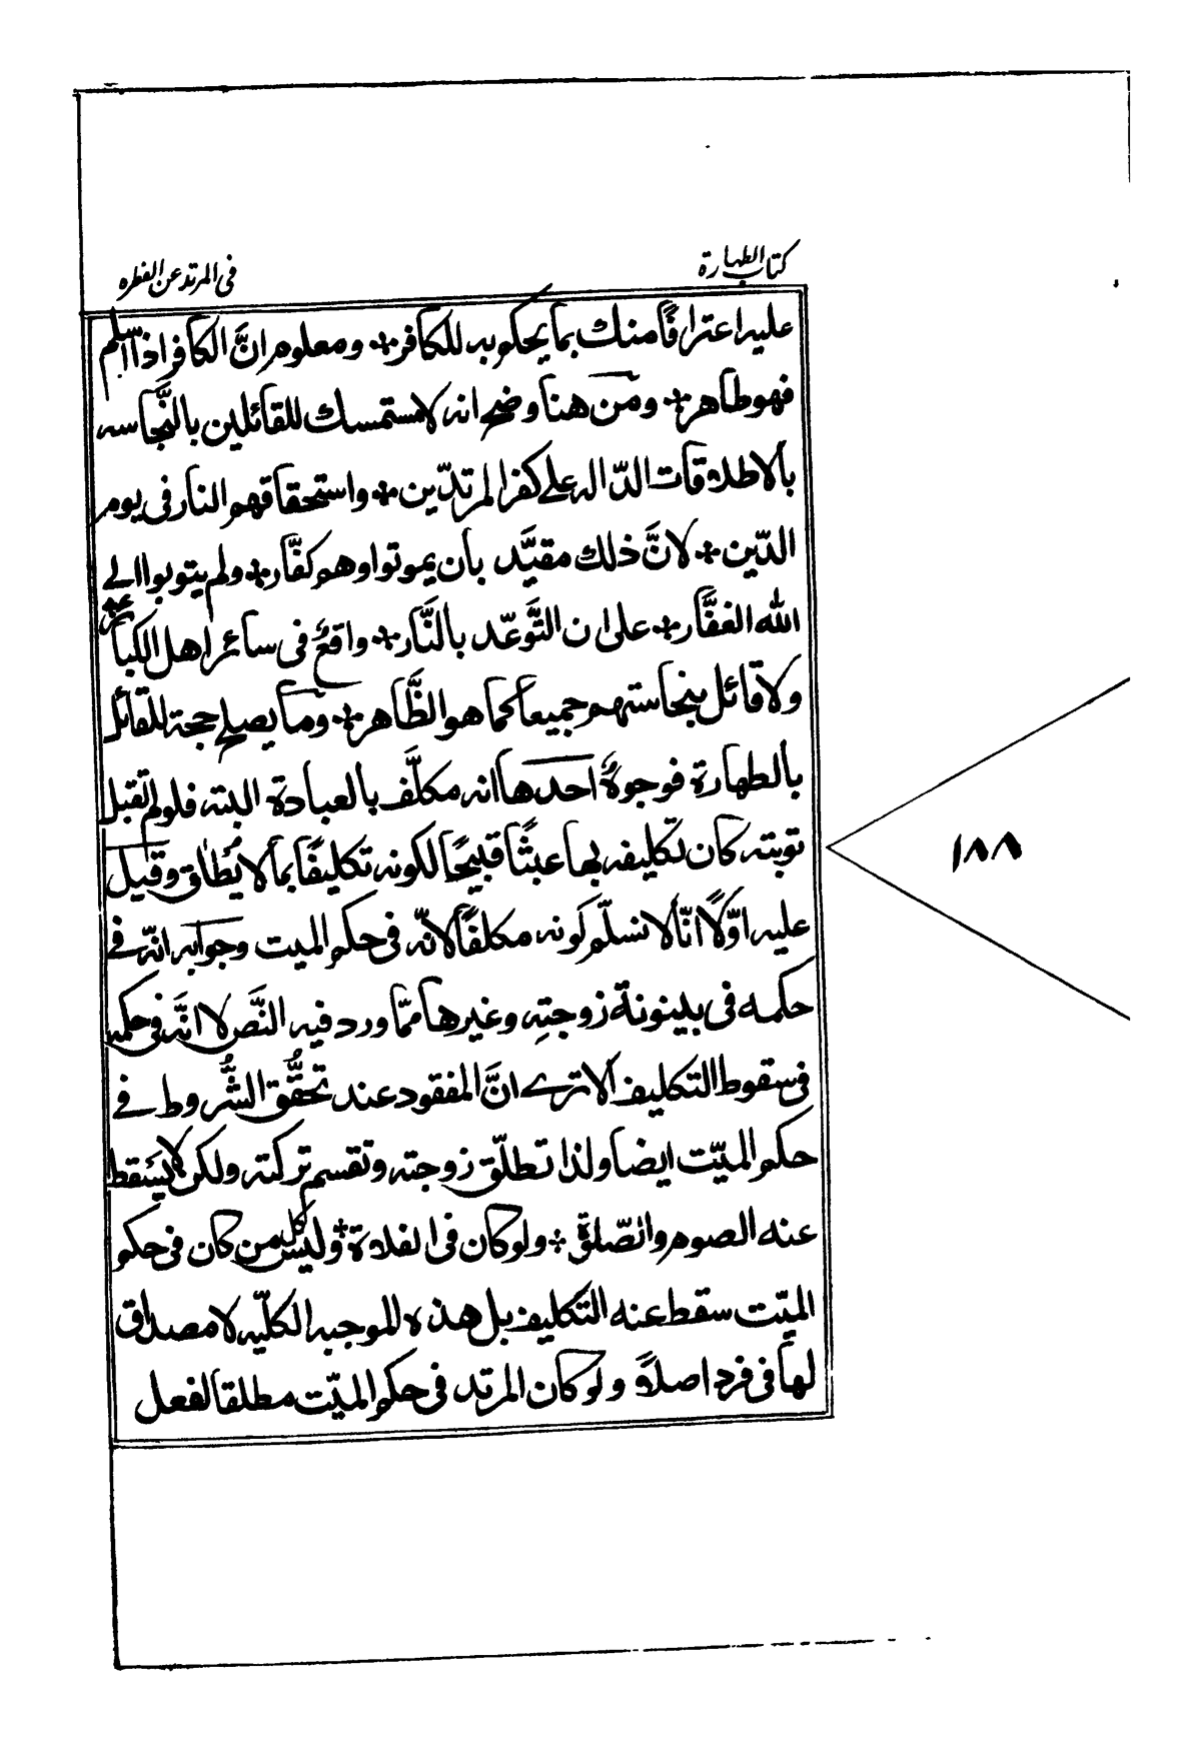 كتاب الطهارة
في المرتد عن الفطره
عليه اعترافًا منك بما يحكم به للكافر ومعلوم انَّ الكافر اذا اسلم
فهو طاهر ومن هنا وضح انه لا مستمسك للقائلين بالنَّجاسه
بالاطلاقات الدّاله على كفر المرتدّين واستحقاقهم النار في يوم
الدّين لانَّ ذلك مقيَّد بان يموتوا وهم كفَّار ولم يتوبوا الى
الله الغفَّار على ان التَّوعّد بالنَّار واقعٌ في سائر اهل الكبائر
ولا قائل بنجاستهم جميعاً كما هو الظَّاهر وما يصلح حجة للقائل
بالطهارة فوجوهٌ احدها انه مكلَّف بالعبادة البته فلو لم تقبل
توبته كان تكليفه بها عبثًا قبيحًا لكونه تكليفًا بما لا يُطاق وقيل
عليه اوّلًا انّا لا نسلّم كونه مكلفًا لانّه في حكم الميت وجوابه انّه في
حكمه في بينونة زوجتِه وغيرها ممّا ورد فيه النَّص لا انَّه في حكمه
في سقوط التكليف الا ترى انَّ المفقود عند تحقُّق الشُّروط في
حكم الميّت ايضا ولذا تطلّق زوجته وتقسم تركته ولكن لا يسقط
عنه الصوم والصّلوة ولو كان في الفلاة وليس كل من كان في حكم
الميّت سقط عنه التكليف بل هذه الموجبه الكلّيه لا مصداق
لها في فرد اصلاً ولو كان المرتد في حكم الميّت مطلقا لفعل
١٨٨